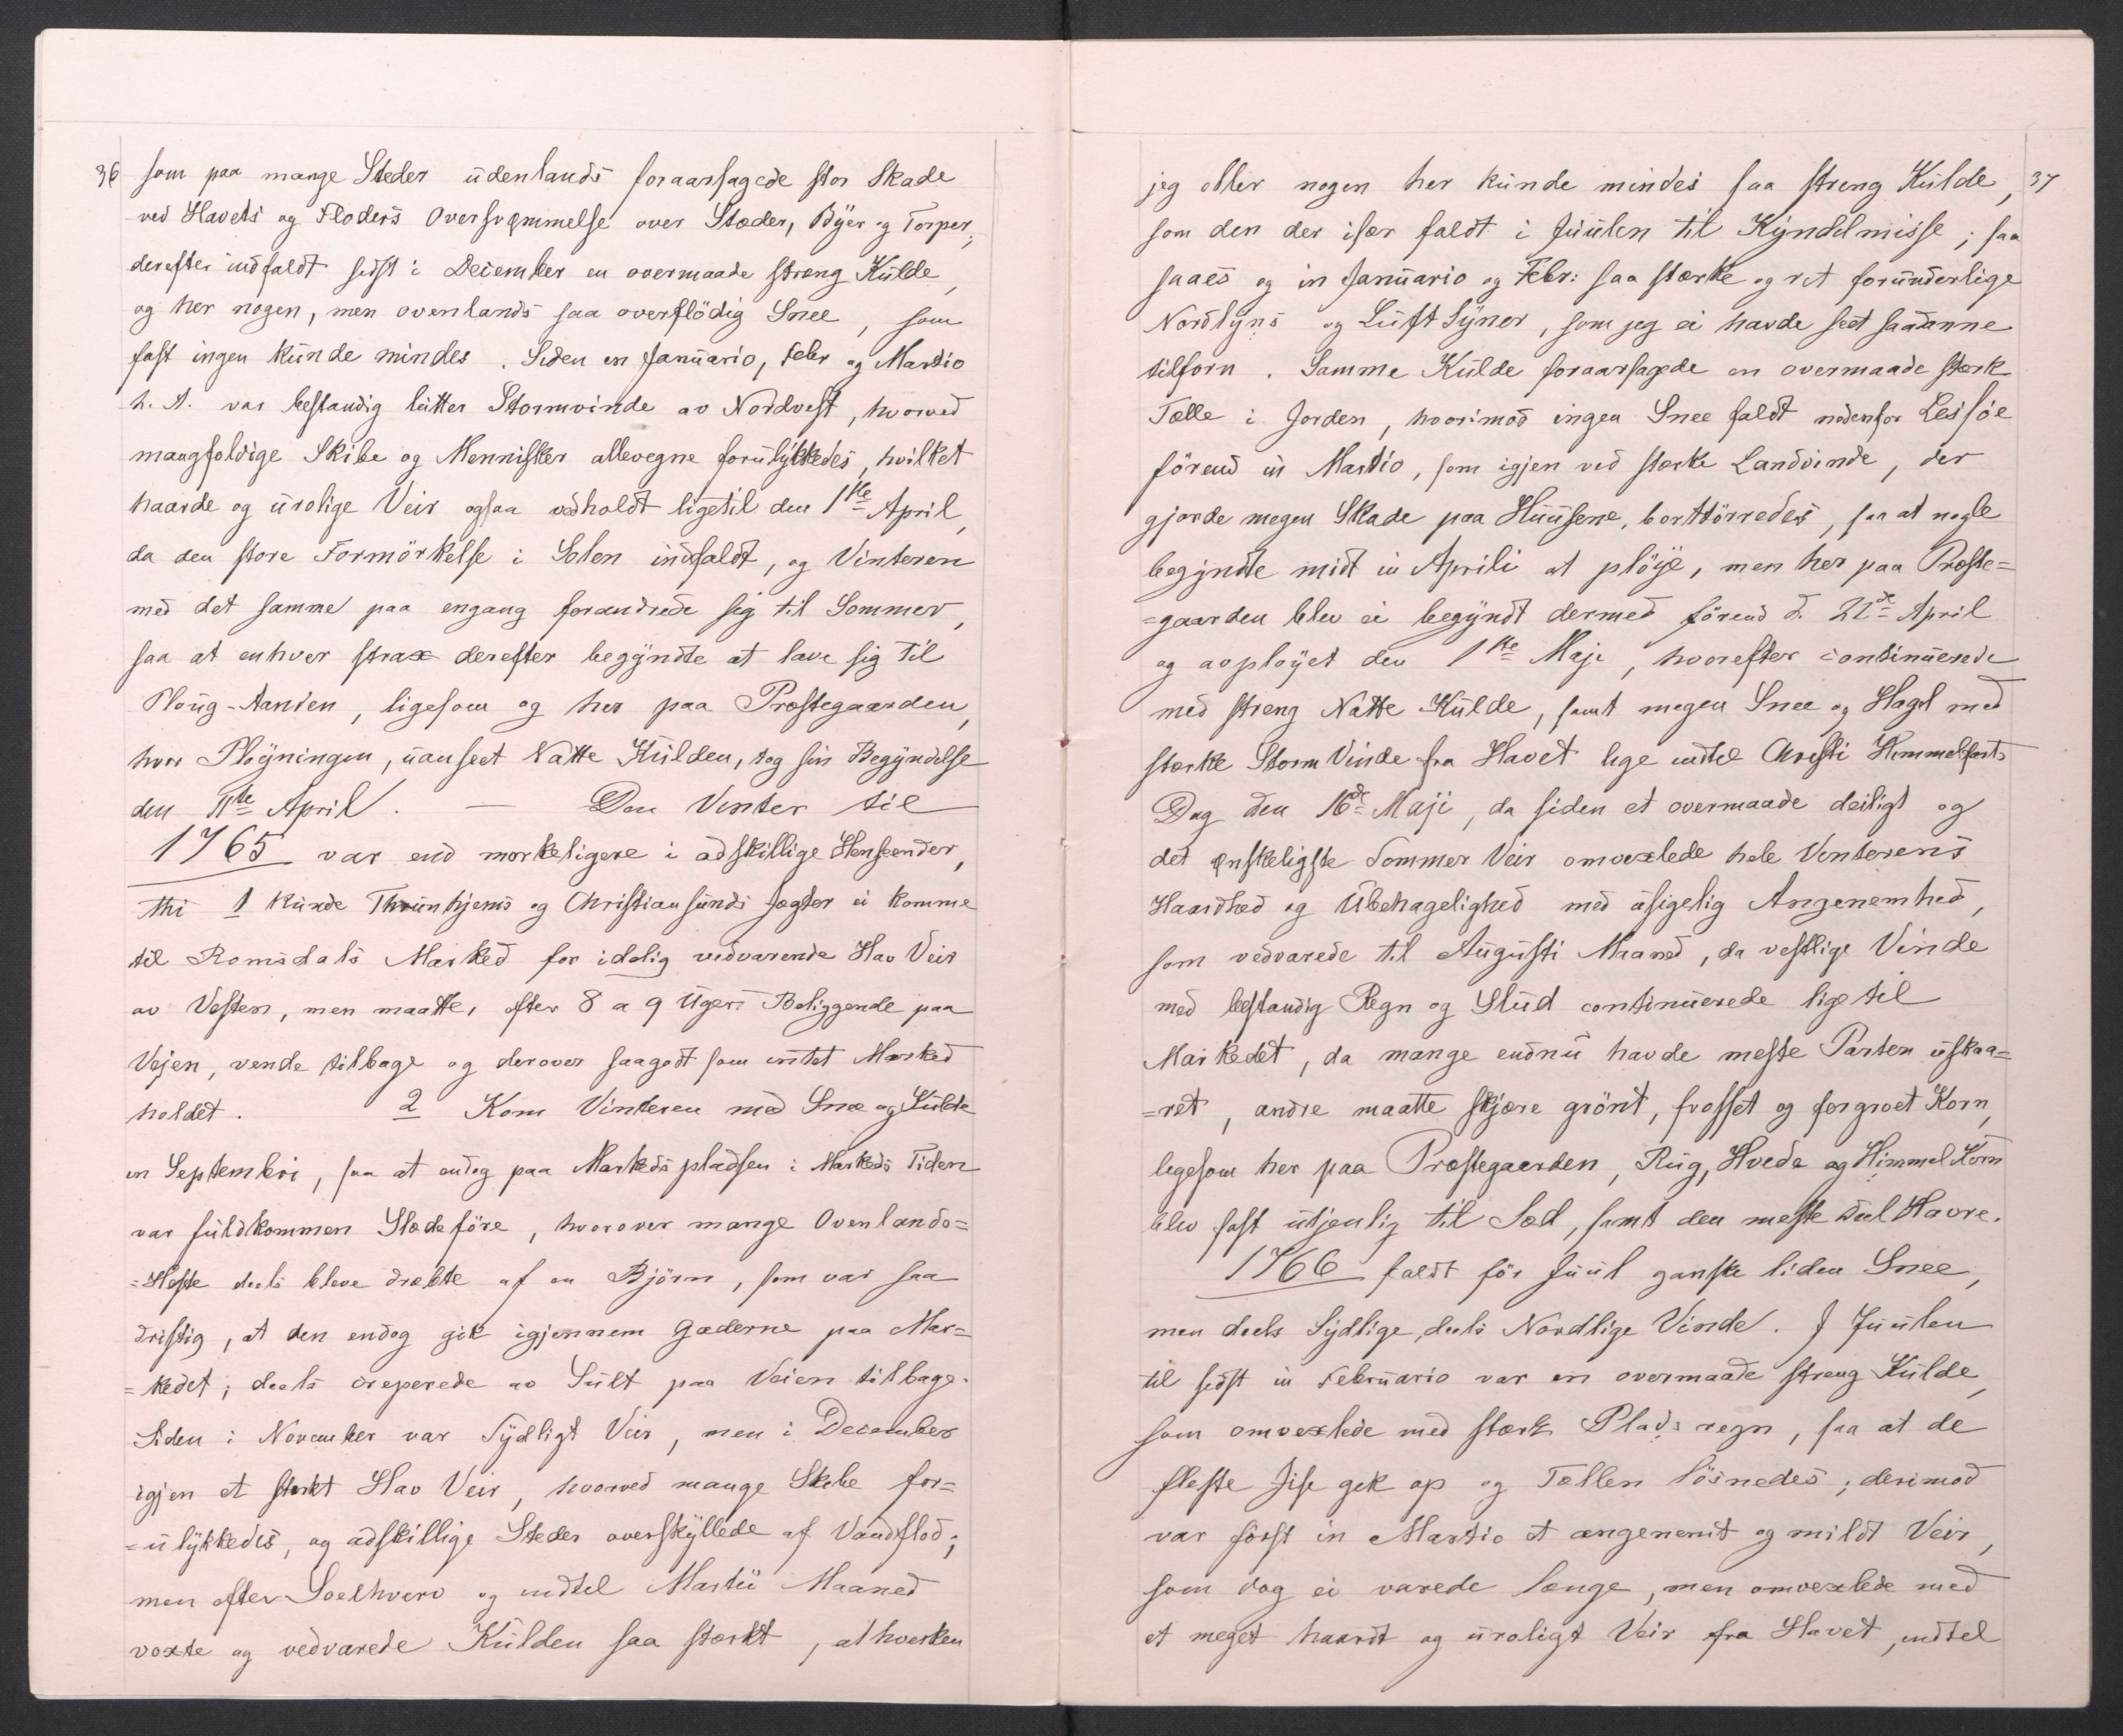 36
som paa mange Steder udenlands foraarsagede stor Skade
ved Havets og Floders Oversvømmelse over Stæder, Byer og Torper,
derefter indfaldt sidst i December en overmaade streng Kulde,
og her nogen, men ovenlands saa overflödig Snee, som
fast ingen kunde mindes. Siden in Januario, Febr og Martio
h. A. var bestandig lutter Stormvinde av Nordvest, hvorved
mangfoldige Skibe og Mennisker allevegne forulykkedes, hvilket
haarde og urolige Veir ogsaa vedholdt ligetil den 1ste April,
da den store Formörkelse i Solen indfaldt, og Vinteren
med det samme paa engang forandrede sig til Sommer,
saa at enhver strax derefter begyndte at lave sig til
Ploug-Aanden, ligesom og her paa Præstegaarden,
hvor Pløyningen, uanseet Natte Kulden, tog sin Begyndelse
den 11te April. — Den Vinter til
1765 var end mærkeligere i adskillige Henseender,
thi 1 kunde Thrunhjems og Christiansunds Jægter ei komme
til Romsdals Marked for idelig vedvarende Hav Veir
av Vesten, men maatte, efter 8 a 9 Ugers Beliggende paa
Vejen, vende tilbage og derover saagodt som intet Marked
holdet. 2 Kom Vinteren med Snee og Kulde
in Septembri, saa at endog paa Markedspladsen i Markeds Tiden
var fuldkommen Slædeföre, hvorover mange Ovenlands=
=Heste deels bleve dræbte af en Björn, som var saa
dristig, at den endog gik igjennem Gæderne paa Mar=
=kedet; deels creperede av Sult paa Veien tilbage.
Siden i November var Sydligt Veir, men i December
igjen et stærkt Hav Veir, hvorved mange Skibe for=
=ulykkedes, og adskillige Steder overskyllede af Vandflod;
men efter Soelhverv og indtil Martii Maaned
voxte og vedvarede Kulden saa stærkt, at hverken
37
jeg eller nogen her kunde mindes saa streng Kulde,
som den der især faldt i Juulen til Kyndelmisse; saa
saaes og in Januario og Febr: saa stærke og ret forunderlige
Nordlyns og Luft Syner, som jeg ei havde seet saadanne
tilforn. Samme Kulde foraarsagede en overmaade stærk
Tælle i Jorden, hvorimod ingen Snee faldt nedenfor Lessöe
förend in Martio, som igjen ved stærke Landvinde, der
gjorde megen Skade paa Huusene, borttörredes, saa at nogle
begyndte midt in Aprili at plöye, men her paa Præste=
=gaarden blev ei begyndt dermed förend d. 22de April
og avpløyet den 1ste Maji, hvorefter continuerede
med streng Natte Kulde, samt megen Snee og Hagl med
stærke Storm Vinde fra Havet lige indtil Christi Himmelfarts
Dag den 16de Maji, da siden et overmaade deiligt og
det ønskeligste Sommer Veir omvexlede hele Vinterens
Haardhed og Ubehagelighed med usigelig Angenemhed,
som vedvarede til Augusti Maaned, da vestlige Vinde
med bestandig Regn og Slud continuerede lige til
Markedet, da mange endnu havde meste Parten uskaa=
=ret, andre maatte skjære grönt, frosset og forgroet Korn,
ligesom her paa Præstegaarden, Rug, Hvede og Himmel Korn
blev fast utjenlig til Sæd, samt den meste Deel Havre.
1766 faldt för Juul ganske liden Snee,
men deels Sydlige, deels Nordlige Vinde. I Juulen
til sidst in Februario var en overmaade streng Kulde,
som omvexlede med stærk Plads regn, saa at de
fleste Jise gik op og Tællen lösnedes; derimod
var först in Martio et angenemt og mildt Veir,
som dog ei varede længe, men omvexlede med
et meget haardt og uroligt Veir fra Havet, indtil